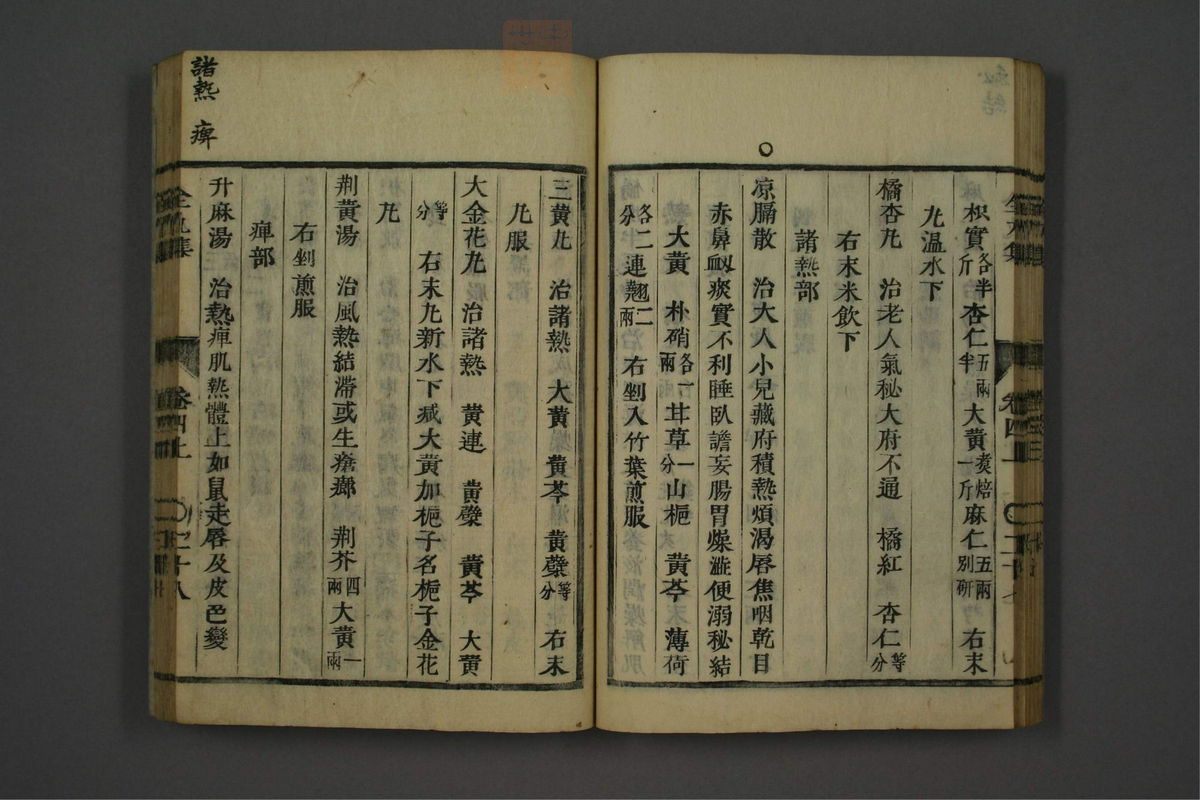 枳實各半斤杏仁五兩半大黃煑焙一斤麻仁五兩別研 右末
九温水下
橘杏九 治老人氣秘大府不通 橘紅 杏仁等分
右末米飲下
諸熱部
凉膈散 治大人小兒藏府積熱煩渴唇焦咽乾目
赤鼻衂痰實不利睡臥譫妄腸胃燥澁便溺秘結
大黃 朴硝各一兩 甘草一分 山梔 黃芩 薄荷
各二分 連翹二兩 右剉入竹葉煎服
三黃九 治諸熱 大黃 黃芩 黃蘗等分 右末
九服
大金花九 治諸熱 黃連 黃蘗 黃芩 大黃
等分 右末九新水下减大黃加梔子名梔子金花
九
荆黃湯 治風熱結滯或生瘡癤 荆芥四兩 大黃一兩
右剉煎服
痺部
升麻湯 治熱痺肌熱體上如鼠走唇及皮色變
諸熱 痺
全九集
卷四上